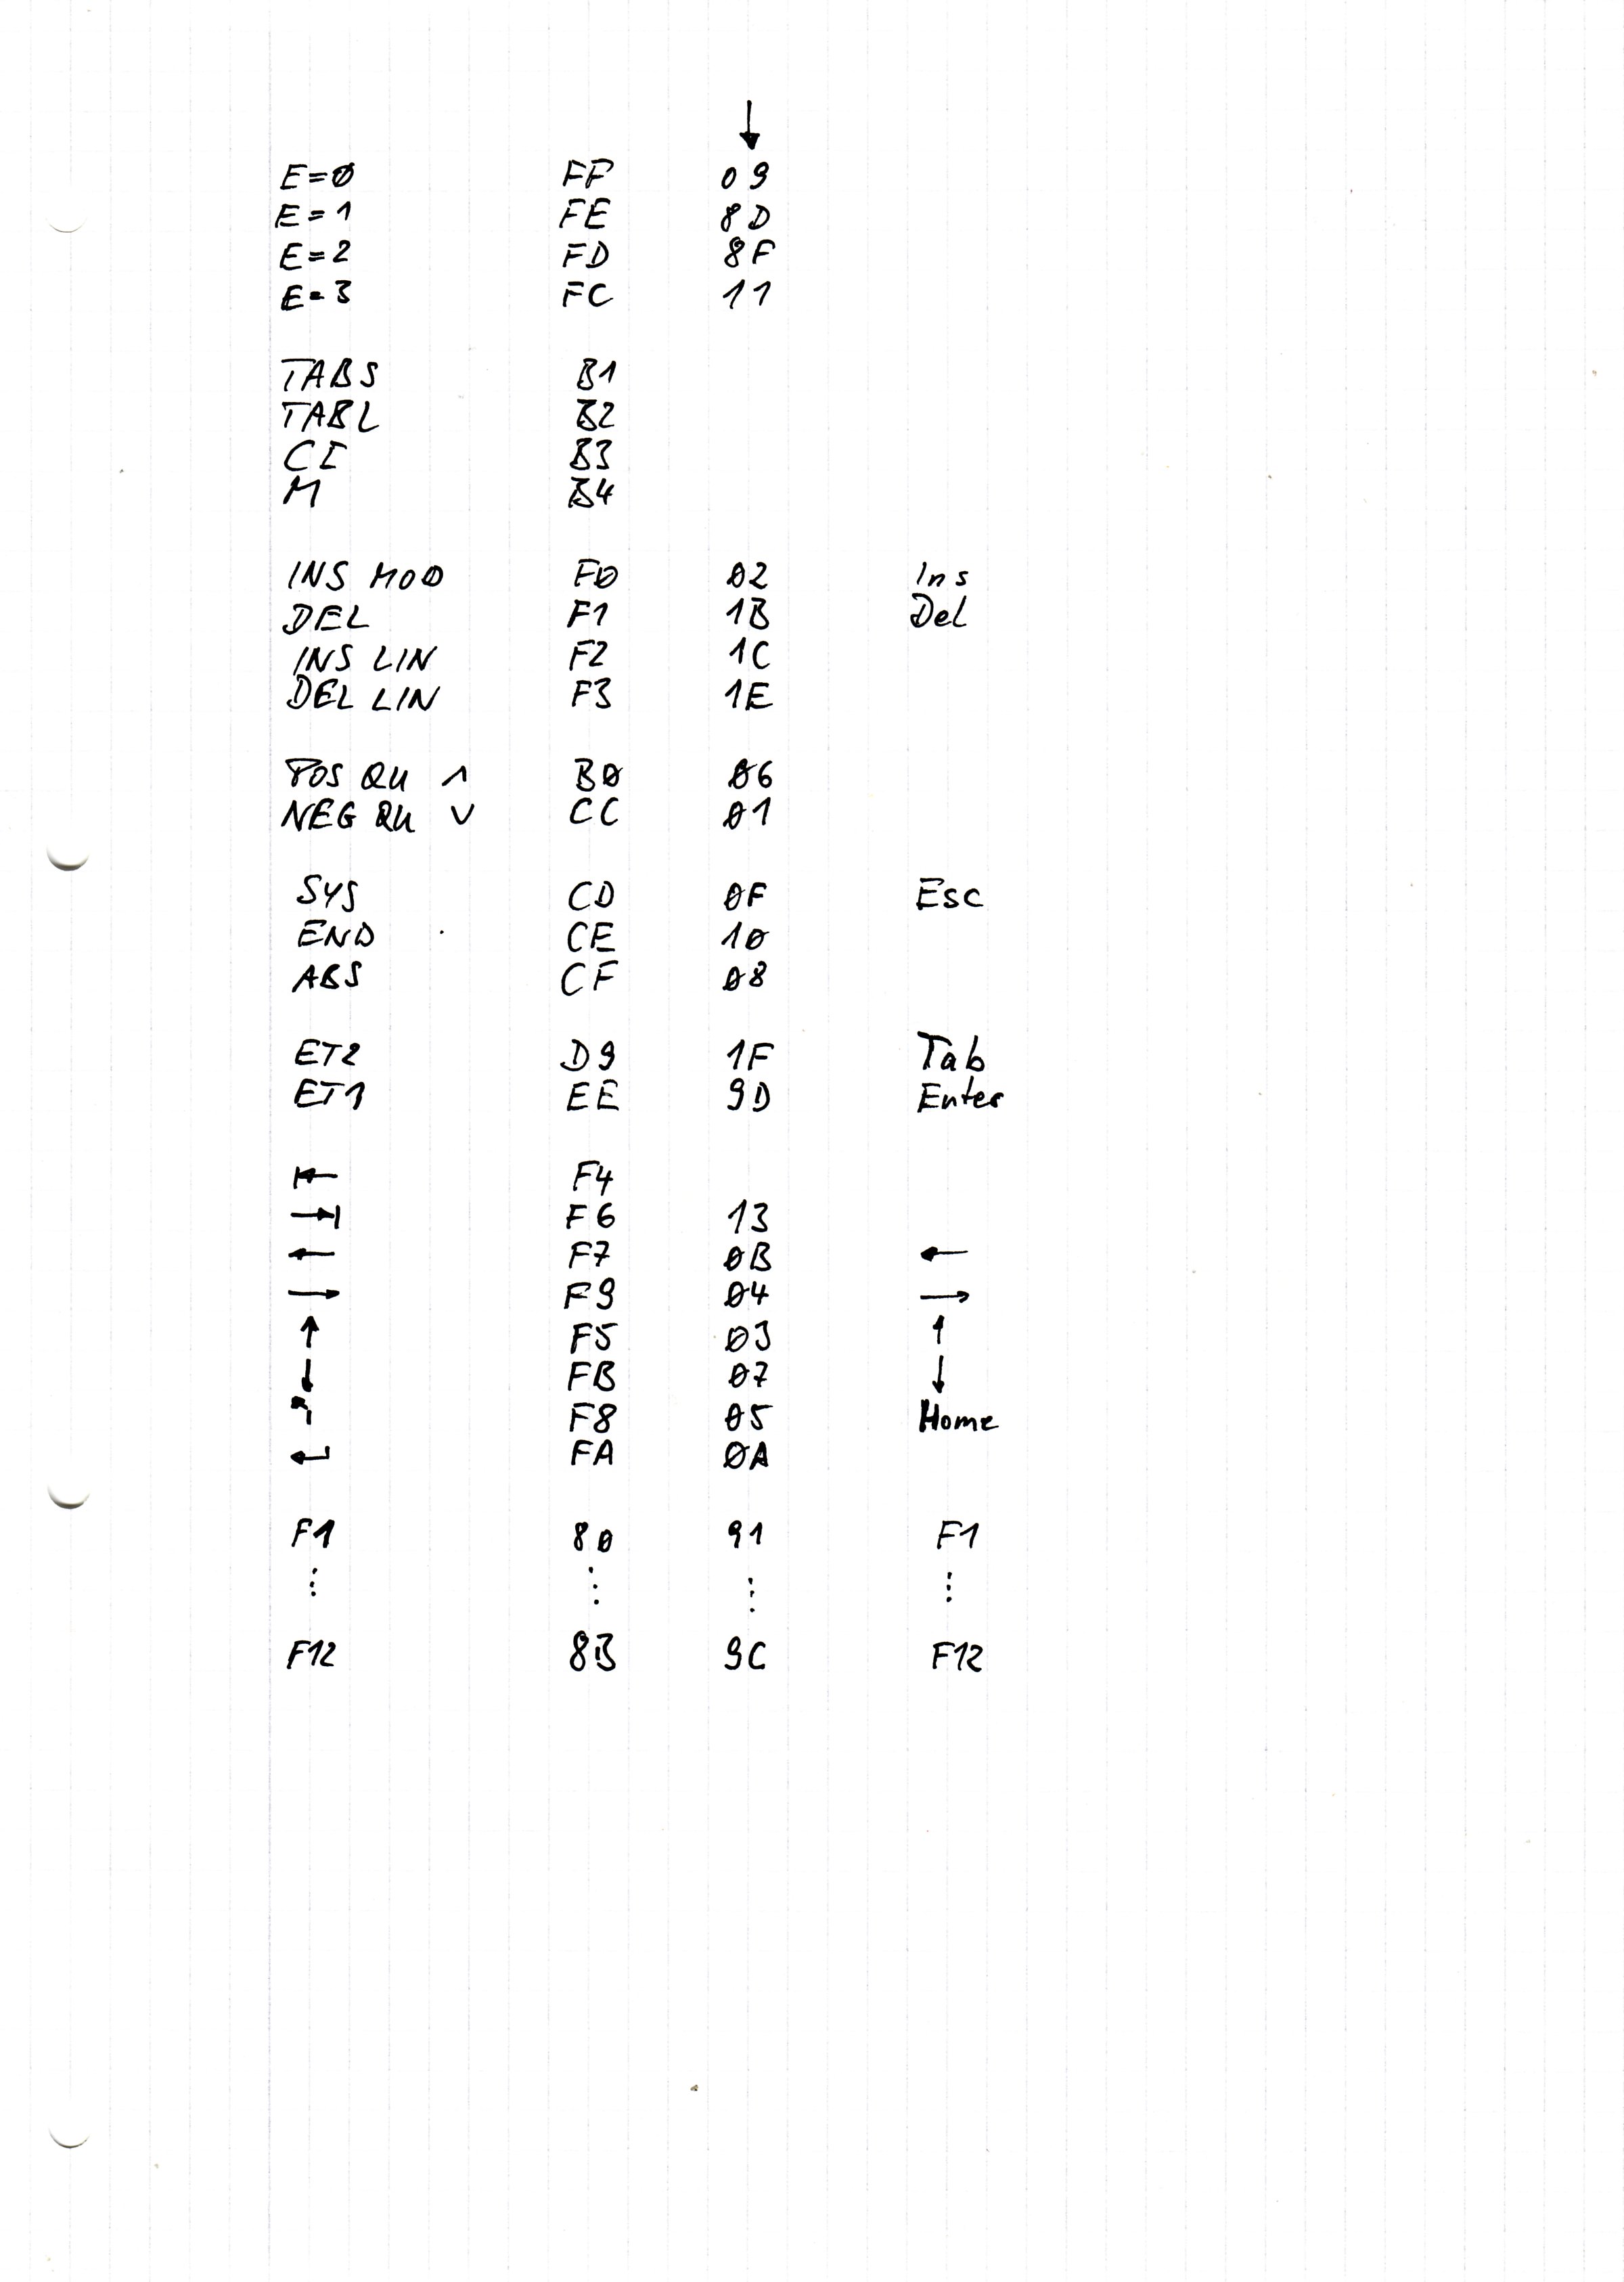 ↓
E=0 FF 09
E=1 FE 8D
E=2 FD 8F
E=3 FC 11
TABS B1
TABL B2
CI B3
M B4
INS MOD F0 02 Ins
DEL F1 1B Del
INS LIN F2 1C
DEL LIN F3 1E
POS QU ʌ B0 06
NEG QU v CC 01
SYS CD 0F Esc
END CE 10
ABS CF 08
ET2 D9 1F Tab
ET1 EE 9D Enter
|← F4
→| F6 13
← F7 0B ←
→ F9 04 →
↑ F5 03 ↑
↓ FB 07 ↓
↰ F8 05 Home
↵ FA 0A
F1 80 91 F1
⋮ ⋮ ⋮ ⋮
F12 8B 9C F12